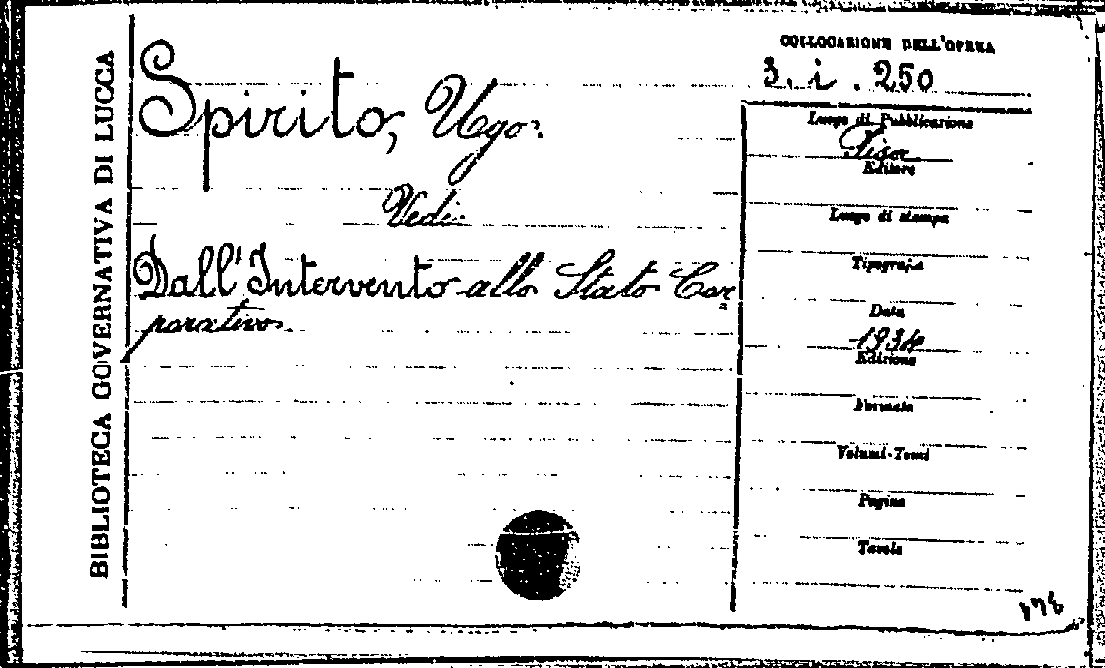 BIBLIOTECA GOVERNATIVA DI LUCCA
Spirito, Ugo.
Vedi:
Dall'Intervento allo Stato Cor
porativo.
COLLOCAZIONE DELL'OPERA
3. i. 250
Luogo di Pubblicazione
Pisa
Editore
Luogo di stampa
Tipografia
Data
1934
Edizione
Formato
Volumi-Tomi
Pagine
Tavole